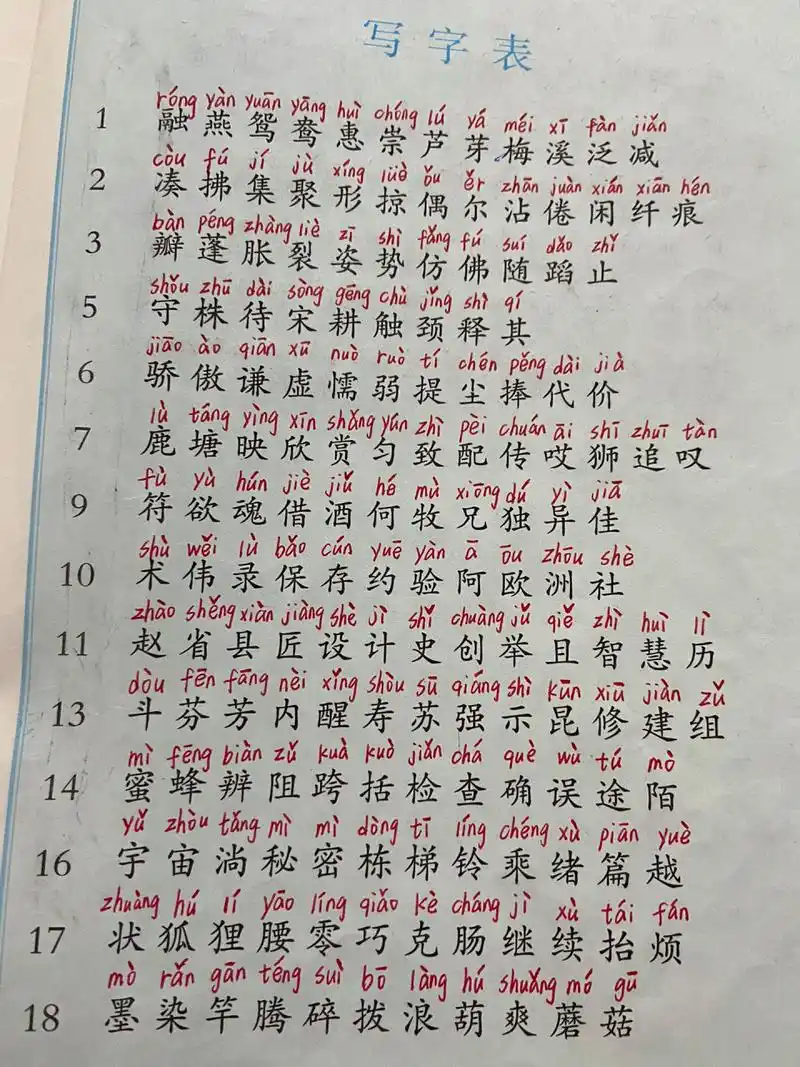 写字表
róng yàn yuān yāng huì chóng lú yá méi xī fàn jiǎn
1 融 燕 鸳 鸯 惠 崇 芦 芽 梅 溪 泛 减
còu fú jí jù xíng lüè ǒu ěr zhān juàn xián xiān hén
2 凑 拂 集 聚 形 掠 偶 尔 沾 倦 闲 纤 痕
bàn péng zhàng liè zī shì fǎng fú suí dǎo zhǐ
3 瓣 蓬 胀 裂 姿 势 仿 佛 随 蹈 止
shǒu zhū dài sòng gēng chù jǐng shì qí
5 守 株 待 宋 耕 触 颈 释 其
jiāo ào qiān xū nuò ruò tí chén pěng dài jià
6 骄 傲 谦 虚 懦 弱 提 尘 捧 代 价
lù táng yìng xīn shǎng yún zhì pèi chuán āi shī zhuī tàn
7 鹿 塘 映 欣 赏 匀 致 配 传 哎 狮 追 叹
fù yù hún jiè jiǔ hé mù xiōng dú yì jiā
9 符 欲 魂 借 酒 何 牧 兄 独 异 佳
shù wěi lù bǎo cún yuē yàn ā ōu zhōu shè
10 术 伟 录 保 存 约 验 阿 欧 洲 社
zhào shěng xiàn jiàng shè jì shǐ chuàng jǔ qiě zhì huì lì
11 赵 省 县 匠 设 计 史 创 举 且 智 慧 历
dòu fēn fāng nèi xǐng shòu sū qiáng shì kūn xiū jiàn zǔ
13 斗 芬 芳 内 醒 寿 苏 强 示 昆 修 建 组
mì fēng biàn zǔ kuà kuò jiǎn chá què wù tú mò
14 蜜 蜂 辨 阻 跨 括 检 查 确 误 途 陌
yǔ zhòu tǎng mì mì dòng tī líng chéng xù piān yuè
16 宇 宙 淌 秘 密 栋 梯 铃 乘 绪 篇 越
zhuàng hú lí yāo líng qiǎo kè cháng jì xù tái fán
17 状 狐 狸 腰 零 巧 克 肠 继 续 抬 烦
mò rǎn gān téng suì bō làng hú shuǎng mó gū
18 墨 染 竿 腾 碎 拨 浪 葫 爽 蘑 菇